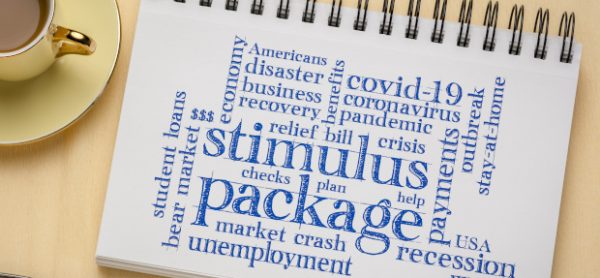 Americans
disaster
business
recovery
economy
benefits
covid-19
coronavirus
pandemic
outbreak
stay-at-home
$$$
relief bill crisis
stimulus
student loans
bear market
checks plan help
package
payments
market crash
USA
unemployment
recession